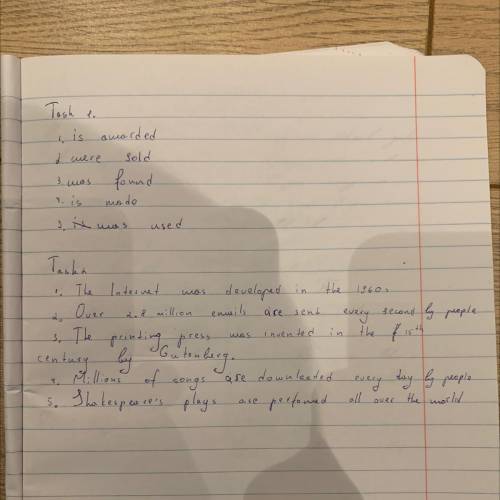 Task 1.
1. is awarded
2. were sold
3. was found
4. is made
5. was used
Task 2
1. The Internet was developed in the 1960s
2. Over 2.8 million emails are sent every second by people
3. The printing press was invented in the 15th
century by Gutenberg.
4. Millions of songs are downloated every day by people
5. Shakespeare's plays are perfomed all over the world